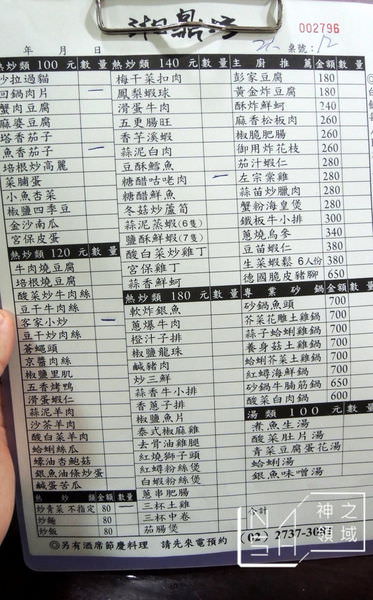 湘鼎活
002796
年 月 日 桌號:12
熱炒類 100 元 數量
沙拉過貓
回鍋肉片 一
蟹肉豆腐
麻婆豆腐
塔香茄子
魚香茄子 一
培根炒高麗
菜脯蛋
小魚杏菜
椒鹽四季豆
金沙南瓜
宮保皮蛋
熱炒類 120 元 數量
牛肉燒豆腐
培根燒豆腐
酸菜炒牛肉絲
豆干牛肉絲
客家小炒 一
豆干肉絲
蒼蠅頭
京醬肉絲
椒鹽里肌
五香烤鴨
滑蛋蝦仁
蒜泥羊肉
沙茶羊肉
酸白菜羊肉
蛤蜊絲瓜
蠔油杏鮑菇
銀魚油條炒蛋
鹹蛋苦瓜
熱 炒 類 金額 數量
炒青菜不指定 80 一
炒麵 80
炒飯 80
熱炒類 140 元 數量
梅干菜扣肉
鳳梨蝦球
滑蛋牛肉
五更腸旺
香芋溪蝦
蒜泥白肉
豆酥鱈魚
糖醋咕咾肉 一
糖醋鮮魚
冬菇炒蘆筍
蒜泥蒸蝦(6隻)
鹽酥鮮蝦(7隻)
酸白菜炒雞丁
宮保雞丁
蒜香鮮蚵
熱炒類 180 元 數量
軟炸銀魚
蔥爆牛肉
橙汁子排
椒鹽龍珠
鹹豬肉
炒三鮮
蒜香牛小排
香蔥子排
椒鹽魚片
泰式椒麻雞
去骨油雞腿
紅燒獅子頭
紅蟳粉絲煲
白蝦粉絲煲
蔥串肥腸
三杯土雞
三杯中卷
茄腸煲
主 廚 推 薦 金額
彭家豆腐 180
黃金炸豆腐 180
酥炸鮮蚵 240
麻香松板肉 260
椒脆肥腸 260
御用炸花枝 260
茄汁蝦仁 260
左宗棠雞 260
蒜苗炒臘肉 260
蟹粉海皇煲 260
鐵板牛小排 300
蔥燒烏參 340
豆苗蝦仁 380
生菜蝦鬆 6人份 380
德國脆皮豬腳 650
專 業 砂 鍋 金額
砂鍋魚頭 700
芥菜花雕土雞鍋 700
蒜子蛤蜊雞鍋 700
養身菇土雞鍋 700
蛤蜊芥菜土雞鍋 700
紅蟳海鮮鍋 700
砂鍋牛腩筋鍋 650
酸菜白肉鍋 600
湯類 100 元
煮魚生湯
酸菜肚片湯
青菜豆腐蛋花湯
蛤蜊湯
銀魚味噌湯
合計
(02) 2737-308
◎另有酒席節慶料理 請先來電預約
神之領域